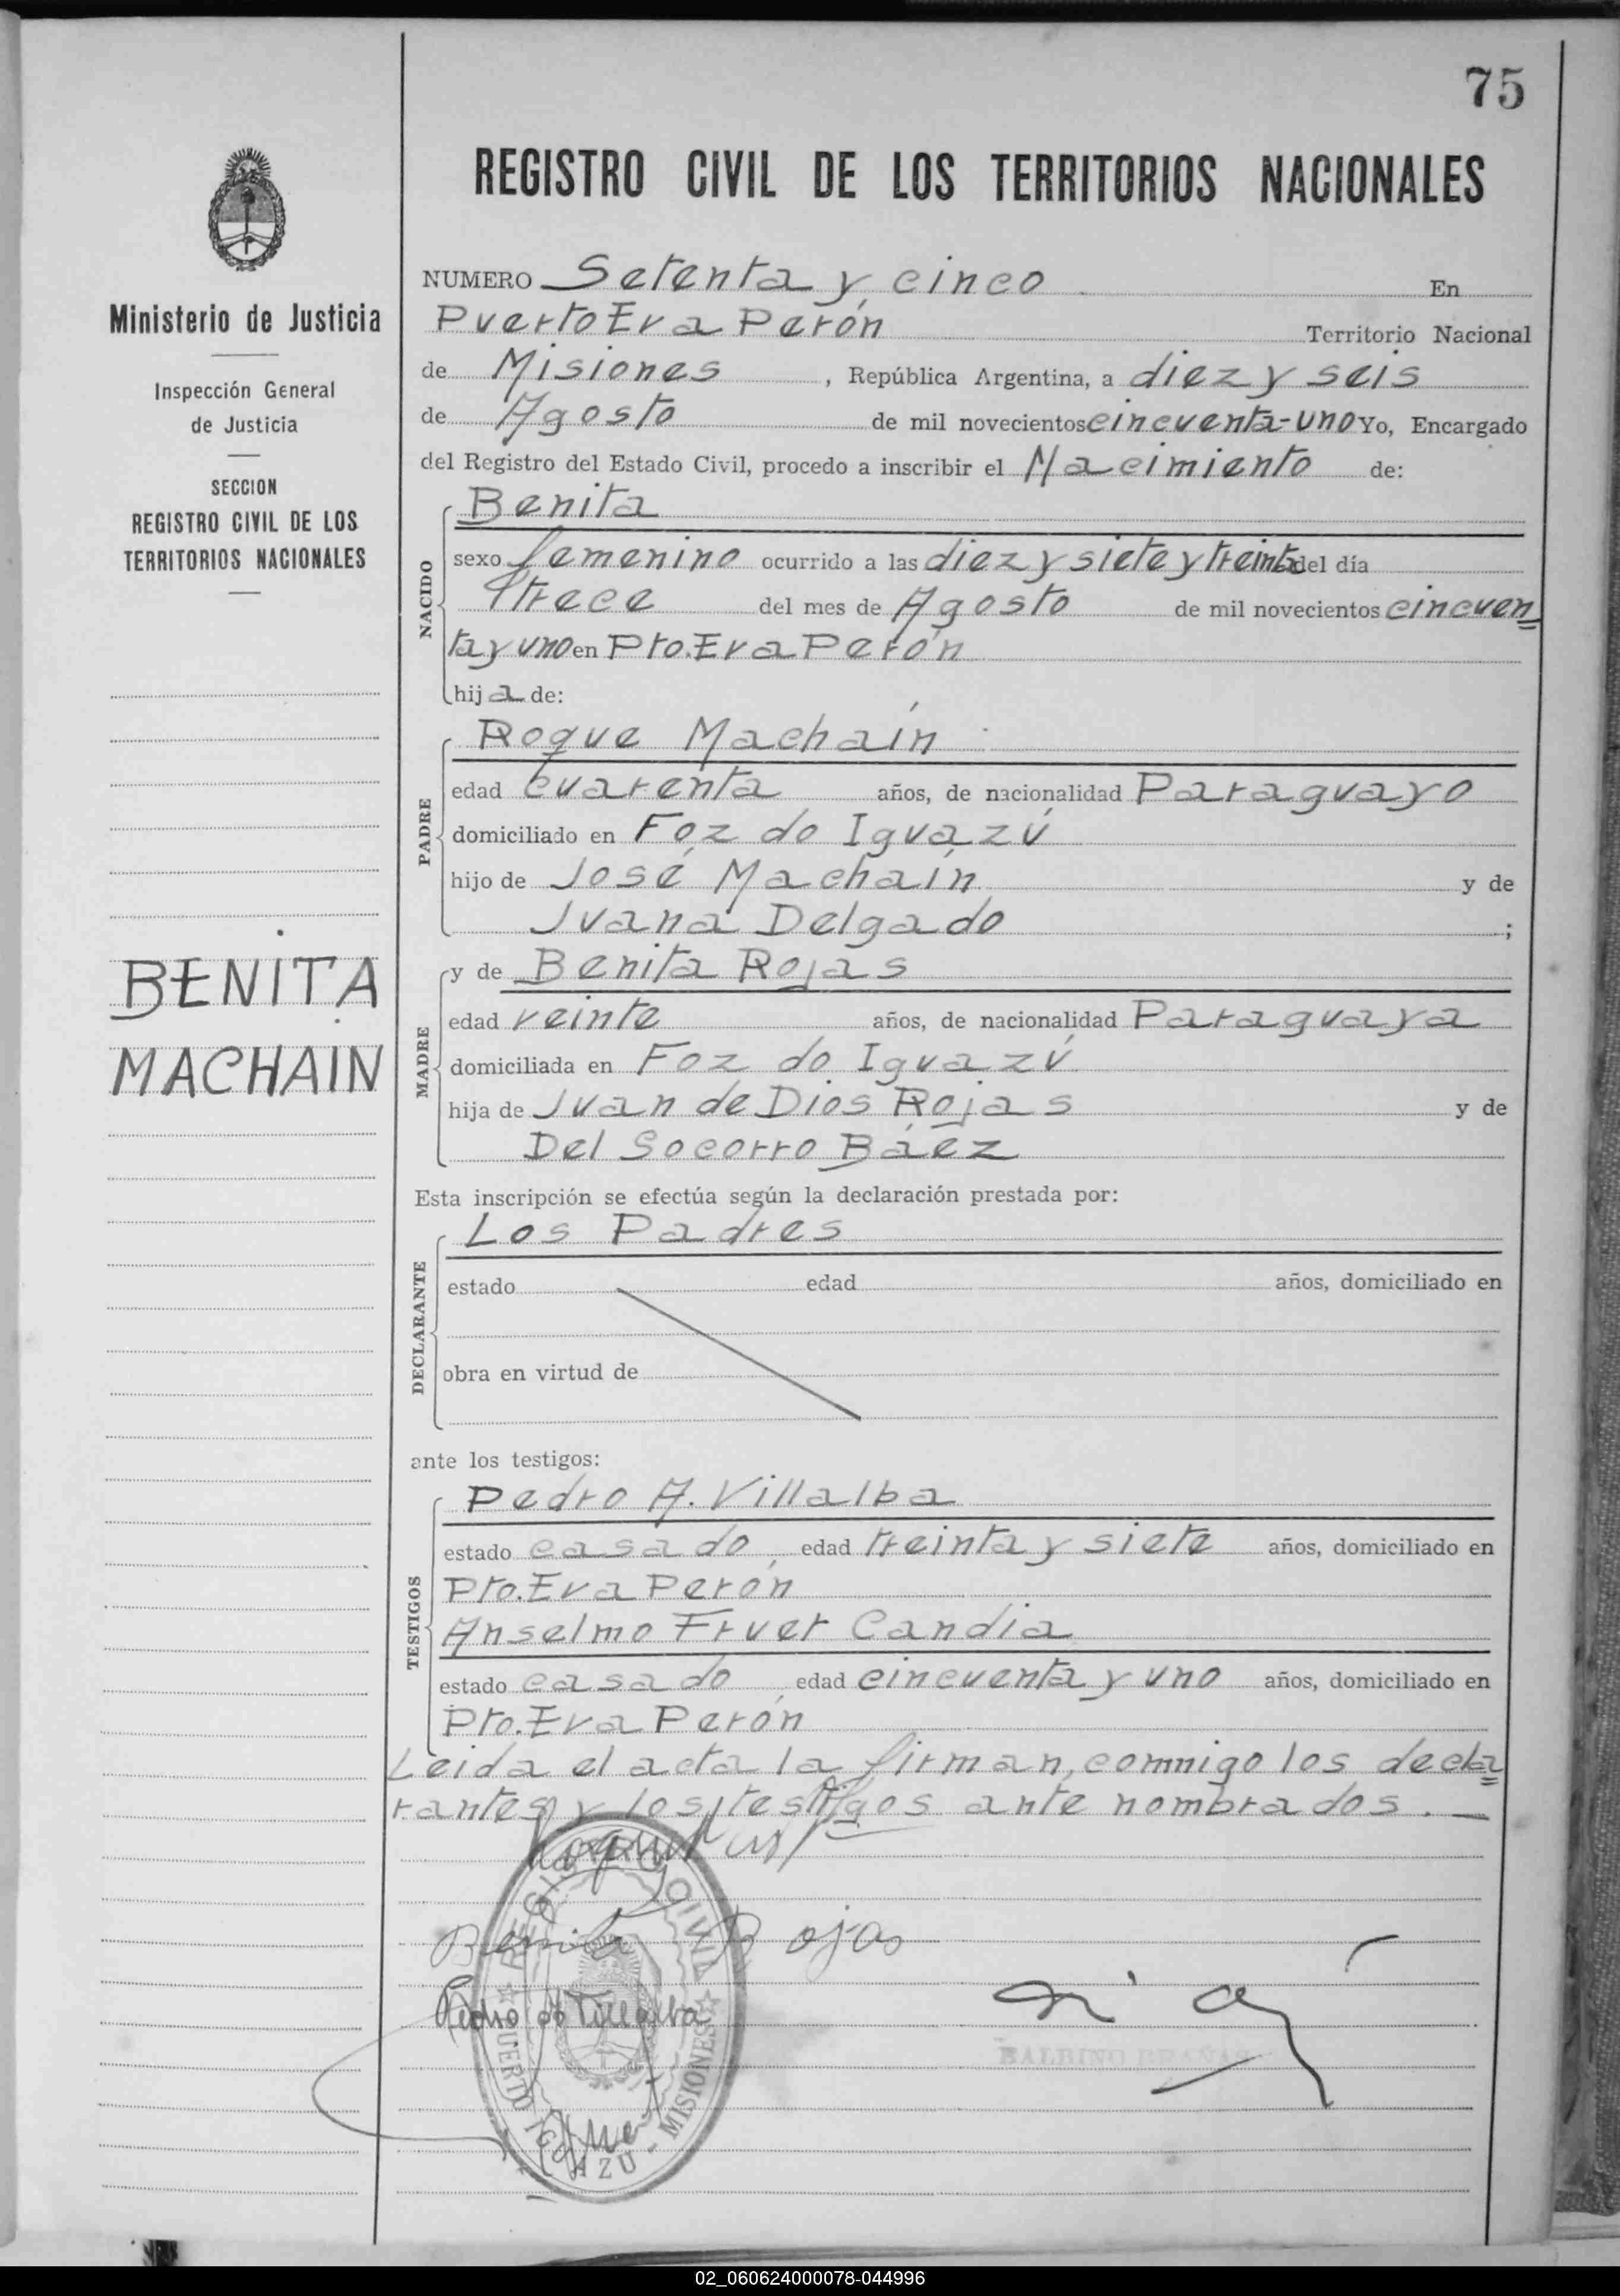 75
REGISTRO CIVIL DE LOS TERRITORIOS NACIONALES
Ministerio de Justicia
Inspección General
de Justicia
SECCION
REGISTRO CIVIL DE LOS
TERRITORIOS NACIONALES
BENITA
MACHAIN
NUMERO Setenta y cinco En
Puerto Eva Perón Territorio Nacional
de Misiones, República Argentina, a diez y seis
de Agosto de mil novecientos cincuenta-uno Yo, Encargado
del Registro del Estado Civil, procedo a inscribir el Nacimiento de:
NACIDO
Benita
sexo femenino ocurrido a las diez y siete y treinta del día
trece del mes de Agosto de mil novecientos cincuen
ta y uno en Pto. Eva Perón
hija de:
PADRE
Roque Machaín
edad cuarenta años, de nacionalidad Paraguayo
domiciliado en Foz do Iguazú
hijo de José Machaín y de
Juana Delgado ;
MADRE
y de Benita Rojas
edad veinte años, de nacionalidad Paraguaya
domiciliada en Foz do Iguazú
hija de Juan de Dios Rojas y de
Del Socorro Báez
Esta inscripción se efectúa según la declaración prestada por:
DECLARANTE
Los Padres
estado edad años, domiciliado en
obra en virtud de
ante los testigos:
TESTIGOS
Pedro A. Villalba
estado casado, edad treinta y siete años, domiciliado en
Pto. Eva Perón
Anselmo Fruer Candia
estado casado, edad cincuenta y uno años, domiciliado en
Pto. Eva Perón
Leida el acta la firman, comnigo los decla
rantes y los testigos ante nombrados.
Benita Rojas
Pedro A Villalba
REGISTRO CIVIL
PUERTO IGUAZU - MISIONES
BALBINO BRAÑAS
02_060624000078-044996